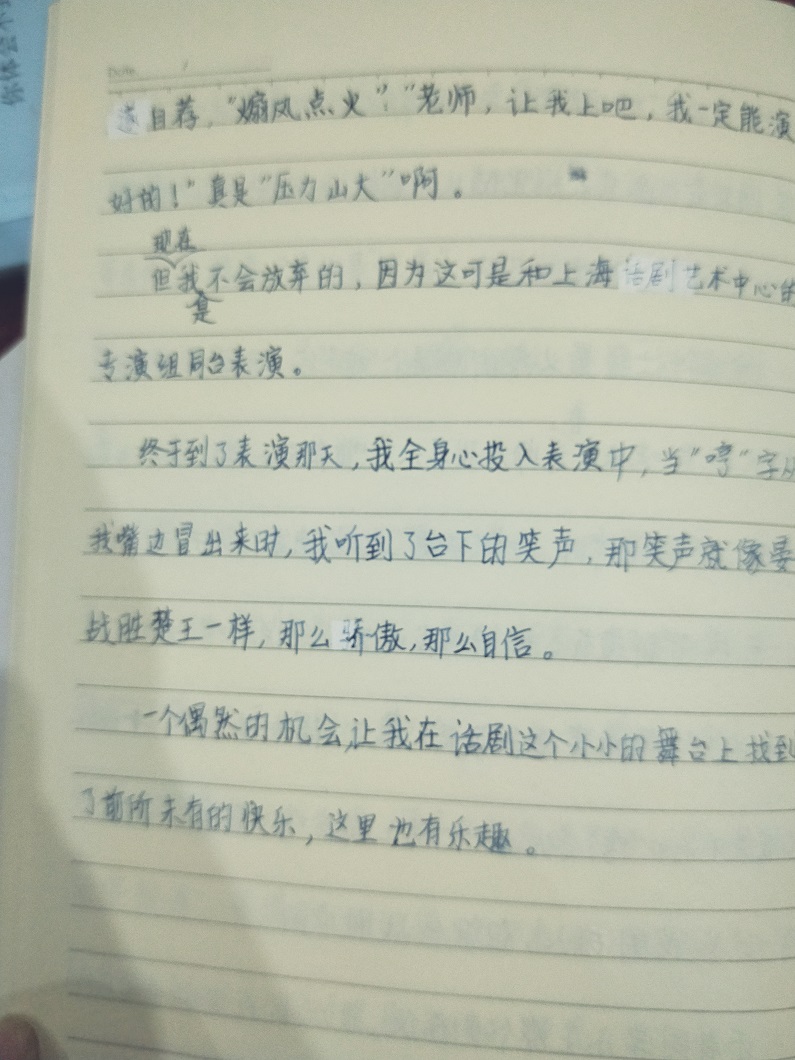 Date
遂自荐，“煽风点火”：“老师，让我上吧，我一定能演
好的！”真是“压力山大”啊。
现在
但我不会放弃的，因为这可是和上海话剧艺术中心的
是
专演组同台表演。
终于到了表演那天，我全身心投入表演中，当“哼”字从
我嘴边冒出来时，我听到了台下的笑声，那笑声就像晏
战胜楚王一样，那么骄傲，那么自信。
一个偶然的机会，让我在话剧这个小小的舞台上找到
了前所未有的快乐，这里也有乐趣。